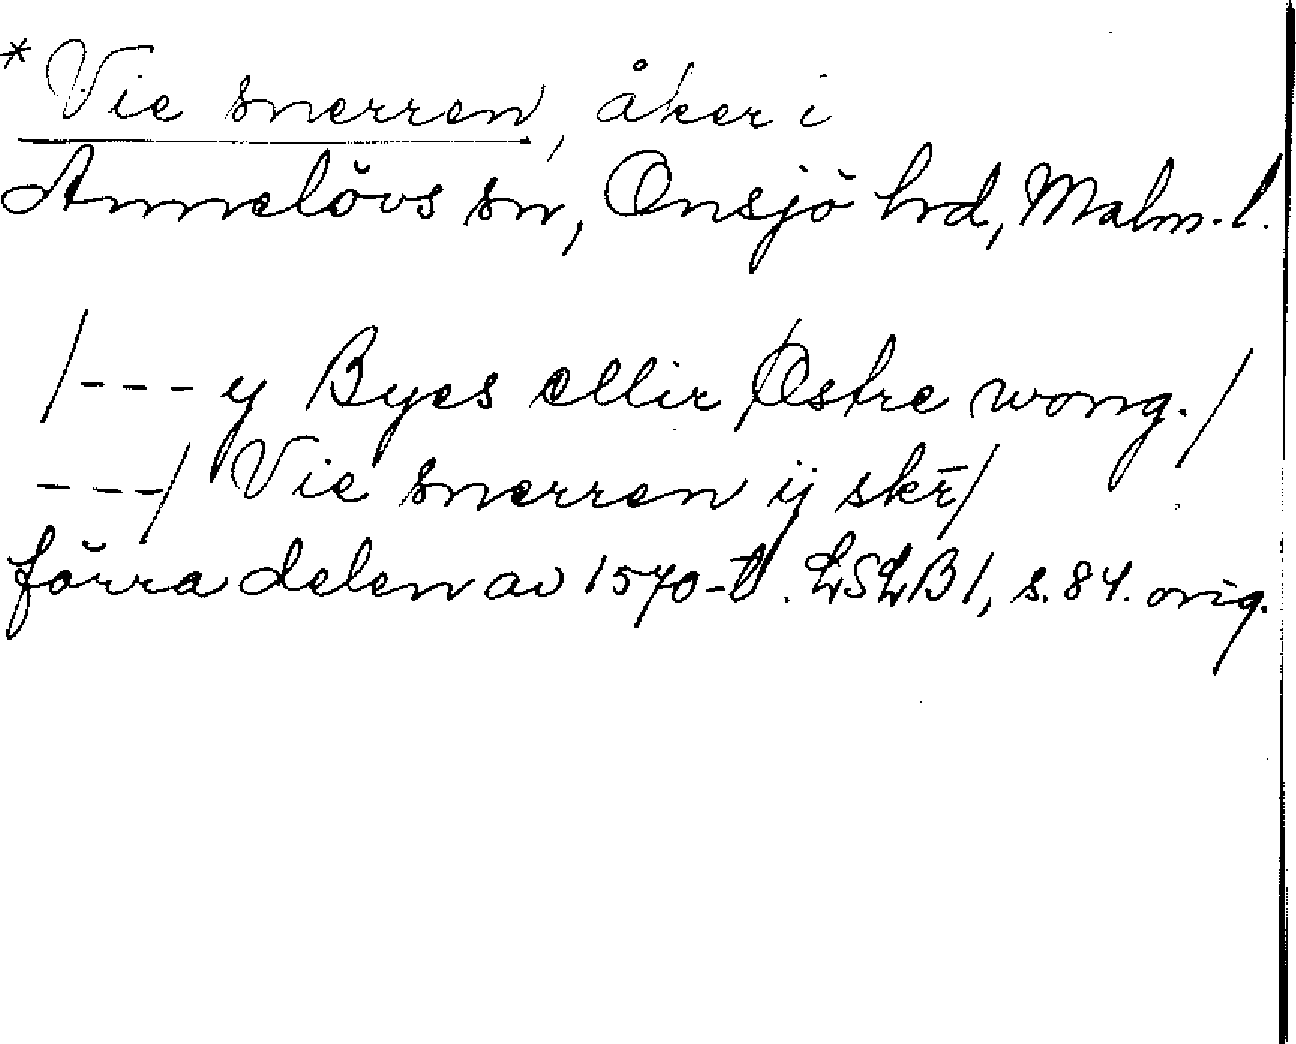 * Vie snerren, åker i
Annelövs sn, Onsjö hrd, Malm. l.
/--- y Byes ellir Østre wong./
---/ Vie snerren ij skr̄/
förra delen av 1570-t. LSLB 1, s. 84. orig.